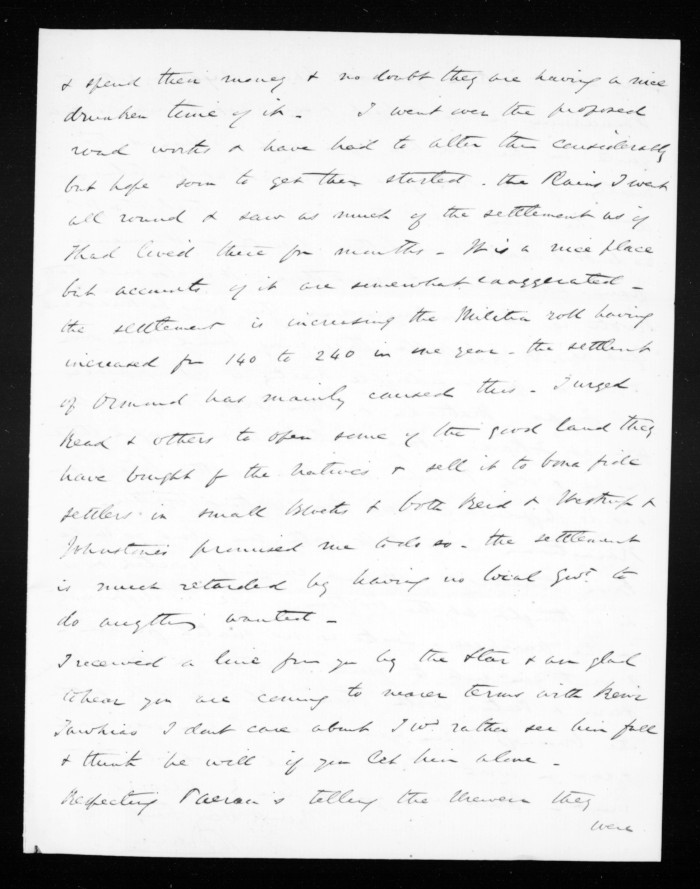 & spend their money & no doubt they are having a nice
drunken time of it - I went over the proposed
road works & have had to alter them considerably
but hope soon to get them started - the Rains I went
all round & saw as much of the settlement as if
I had lived there for months - It is a nice place
but accounts of it are somewhat exaggerated -
the settlement is increasing the Militia roll having
increased fm 140 to 240 in one year - the settlent
of Ormond has mainly caused this - I urged
Read & others to open some of the good land they
have bought f the Natives & sell it to bona fide
settlers in small blocks & both Reid & Westrup &
Johnstone promised me to do so - the settlement
is much retarded by having no local Govt to
do anything wanted -
I received a line from you by the Star & am glad
to hear you are coming to nearer terms with
Tawhiao I dont care about I wd rather see him fall
& think he will if you let him alone -
Respecting telling the Urewera they
were